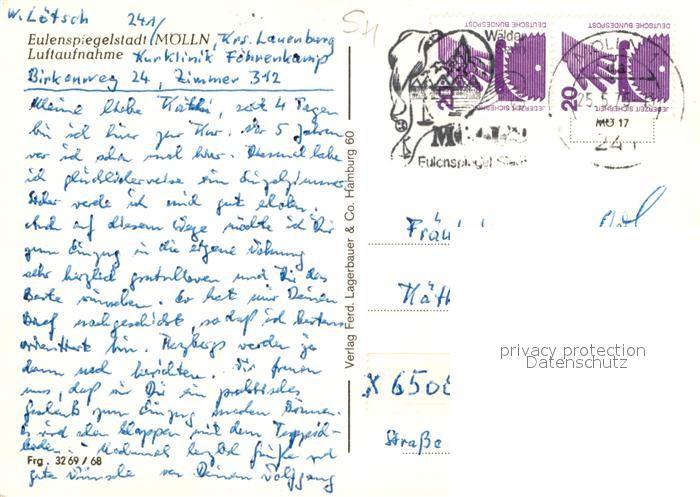 W. Lötsch 241/
Eulenspiegelstadt MÖLLN, Krs. Lauenburg
Luftaufnahme Kurklinik Föhrenkamp
Birkenweg 24, Zimmer 312
Meine liebe Käthi, seit 4 Tagen
bin ich hier zur Kur. Vor 5 Jahren
war ich schon mal hier. Diesmal habe
ich glücklicherweise ein Einzelzimmer
Sicher werde ich mich gut erholen.
Auch auf diesem Wege möchte ich Dir
zum Einzug in die eigene Wohnung
sehr herzlich gratulieren und Dir das
Beste wünschen. hat mir Deinen
Brief nachgeschickt, so daß ich bestens
orientiert bin. werden ja
dann noch berichten. Wir freuen
uns, daß wir Dir ein praktisches
Geschenk zum Einzug machen können.
Es wird schon klappen mit dem Teppich-
boden. Nochmal herzl. Grüße und
gute Wünsche von Deinem Wolfgang
Frg. 3269/68
Verlag Ferd. Lagerbauer & Co. Hamburg 60
Wälder
MÖLLN
Eulenspiegel-Stadt
DEUTSCHE BUNDESPOST
20
JEDERZEIT SICHERHEIT
DEUTSCHE BUNDESPOST
20
JEDERZEIT SICHERHEIT
MÖLLN
MÖ 17
241
Fräul
Käth
X 6508
Straße
privacy protection
Datenschutz